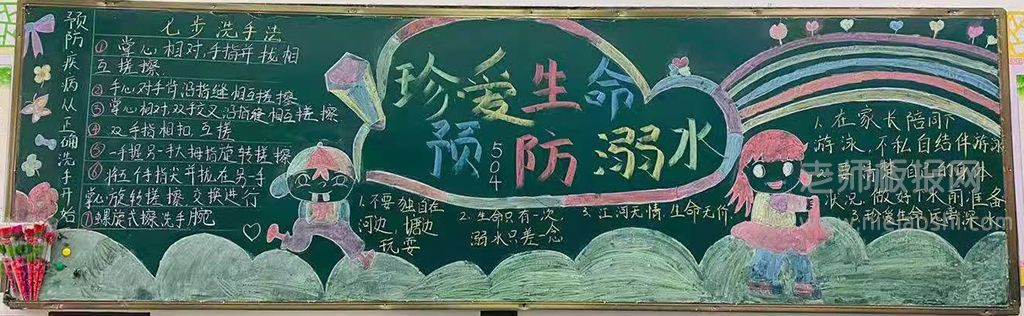 预防疾病从正确洗手开始
七步洗手法
① 掌心相对,手指并拢相
互搓擦
② 手心对手背沿指缝相互搓擦
③ 掌心相对,双手交叉沿指缝相互搓擦
④ 双手指相扣,互搓
⑤ 一手握另一手大拇指旋转搓擦
⑥ 将五个手指尖并拢在另一手
掌心旋转搓擦,交换进行
⑦ 螺旋式擦洗手腕
珍爱生命
预防溺水
504
1.不要独自在
河边、塘边
玩耍
2.生命只有一次,
溺水只差一念
3.江河无情,生命无价
1.在家长陪同下
游泳,不私自结伴游泳
2.要清楚自己的身体
状况,做好下水前准备
老师板报网